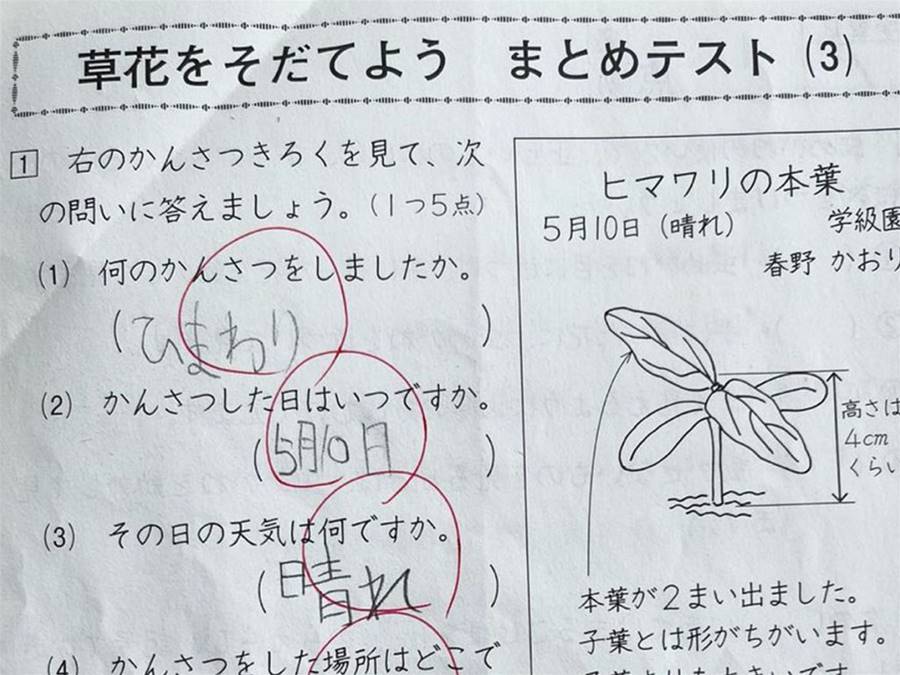 草花をそだてよう まとめテスト (3)
1 右のかんさつきろくを見て、次
の問いに答えましょう。(1つ5点)
(1) 何のかんさつをしましたか。
(ひまわり)
(2) かんさつした日はいつですか。
(5月10日)
(3) その日の天気は何ですか。
(晴れ)
(4) かんさつをした場所はどこで
ヒマワリの本葉
5月10日 (晴れ) 学級園
春野 かおり
高さは
4cm
くらい
本葉が2まい出ました。
子葉とは形がちがいます。
子葉よりも大きいです。